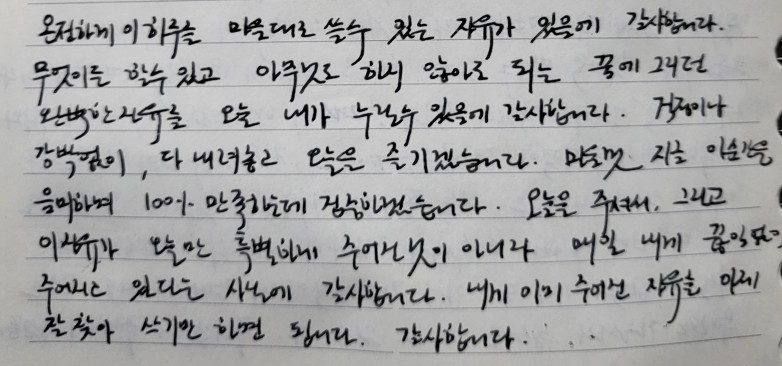 온전하게 이 하루를 마음대로 쓸수 있는 자유가 있음에 감사합니다.
무엇이든 할수 있고 아무것도 하지 않아도 되는 꿈에 그리던
완벽한 자유를 오늘 내가 누릴수 있음에 감사합니다. 걱정이나
강박없이, 다 내려놓고 오늘은 즐기겠습니다. 마음껏 지금 이순간을
음미하며 100% 만족하는데 집중하겠습니다. 오늘을 주셔서, 그리고
이 자유가 오늘만 특별하게 주어진 것이 아니라 매일 내게 끊임없이
주어지고 있다는 사실에 감사합니다. 내게 이미 주어진 자유를 이제
잘 찾아 쓰기만 하면 됩니다. 감사합니다. . .